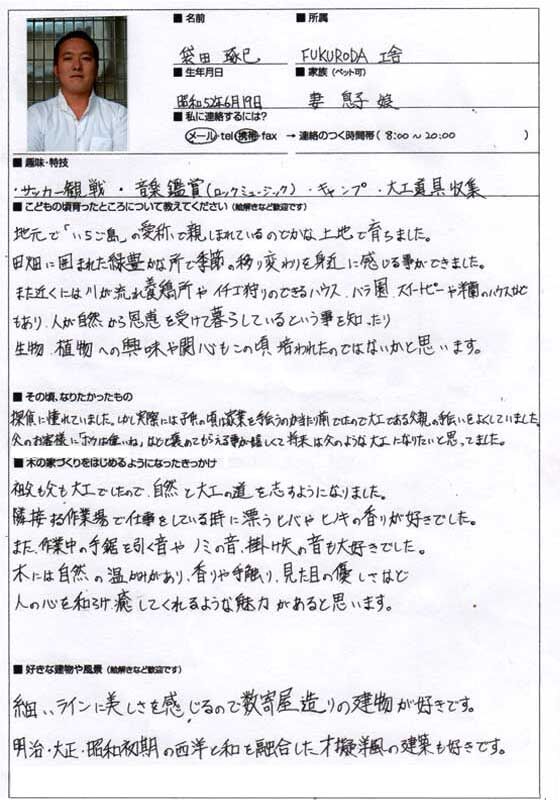 ■ 名前 ■ 所属
袋田 琢巳 FUKURODA 工舎
■ 生年月日 ■ 家族（ペット可）
昭和52年6月19日 妻 息子 娘
■ 私に連絡するには?
メール・tel・携帯・fax → 連絡のつく時間帯（ 8:00〜20:00 ）
■ 趣味・特技
・サッカー観戦 ・音楽鑑賞(ロックミュージック) ・キャンプ ・大工道具収集
■ こどもの頃育ったところについて教えてください（絵解きなど歓迎です）
地元で「いちご島」の愛称で親しまれているのどかな土地で育ちました。
田畑に囲まれた緑豊かな所で季節の移り変わりを身近に感じる事ができました。
また近くには川が流れ養鶏所やイチゴ狩りのできるハウス、バラ園、スイートピーや蘭のハウスなど
もあり、人が自然から恩恵を受けて暮らしているという事を知ったり
生物、植物への興味や関心もこの頃培われたのではないかと思います。
■ その頃、なりたかったもの
探偵に憧れていました。しかし実際には子供の頃は家業を手伝うのが当たり前でしたので大工である父親の手伝いをよくしていました。
父のお客様に「ボクは偉いね」などと褒めてもらえる事が嬉しくて将来は父のような大工になりたいと思ってました。
■ 木の家づくりをはじめるようになったきっかけ
祖父も父も大工でしたので、自然と大工の道を志すようになりました。
隣接する作業場で仕事をしている時に漂うヒバやヒノキの香りが好きでした。
また、作業中の手鋸を引く音やノミの音、掛け矢の音も大好きでした。
木には自然の温かみがあり、香りや手触り、見た目の優しさなど
人の心を和らげ癒してくれるような魅力があると思います。
■ 好きな建物や風景（絵解きなど歓迎です）
細いラインに美しさを感じるので数寄屋造りの建物が好きです。
明治・大正・昭和初期の西洋と和を融合した擬洋風の建築も好きです。